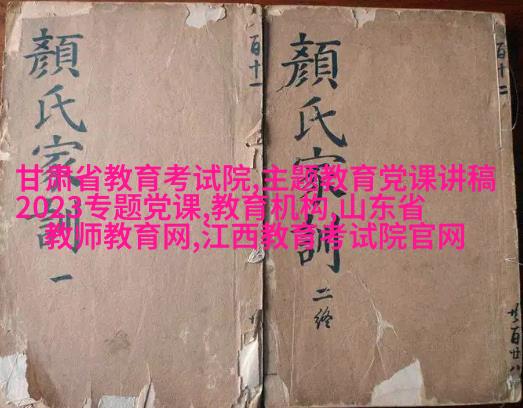 顔氏家訓 一
顔氏家訓 二終
百十一
百十二
甘肃省教育考试院,主题教育党课讲稿
2023专题党课,教育机构,山东省
教师教育网,江西教育考试院官网